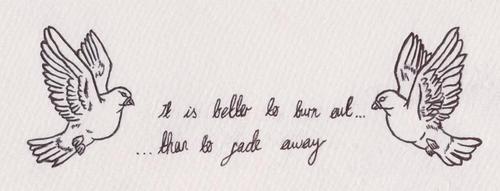 it is better to burn out...
...than to fade away